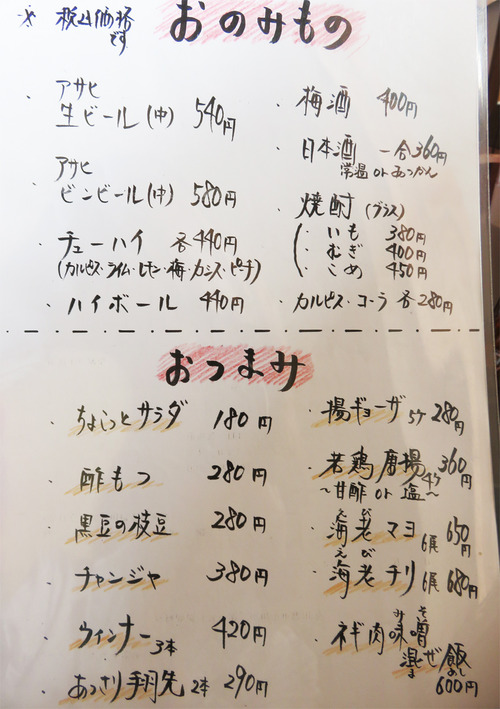 ※ 税込価格です
おのみもの
アサヒ
生ビール(中) 540円
アサヒ
ビンビール(中) 580円
チューハイ 各440円
(カルピス・ライム・レモン・梅・カシス・ピーチ)
ハイボール 440円
梅酒 400円
日本酒 一合360円
常温 or あつかん
焼酎 (グラス)
いも 380円
むぎ 400円
こめ 450円
カルピス・コーラ 各280円
おつまみ
ちょこっとサラダ 180円
酢もつ 280円
黒豆の枝豆 280円
チャンジャ 380円
ウィンナー3本 420円
あっさり手羽先2本 290円
揚ギョーザ5ケ 280円
若鶏唐揚4ケ 360円
〜甘酢 or 塩〜
えび
海老マヨ 6尾 650円
えび
海老チリ 6尾 680円
みそ
ネギ肉味噌
混ぜ飯
まめし
600円